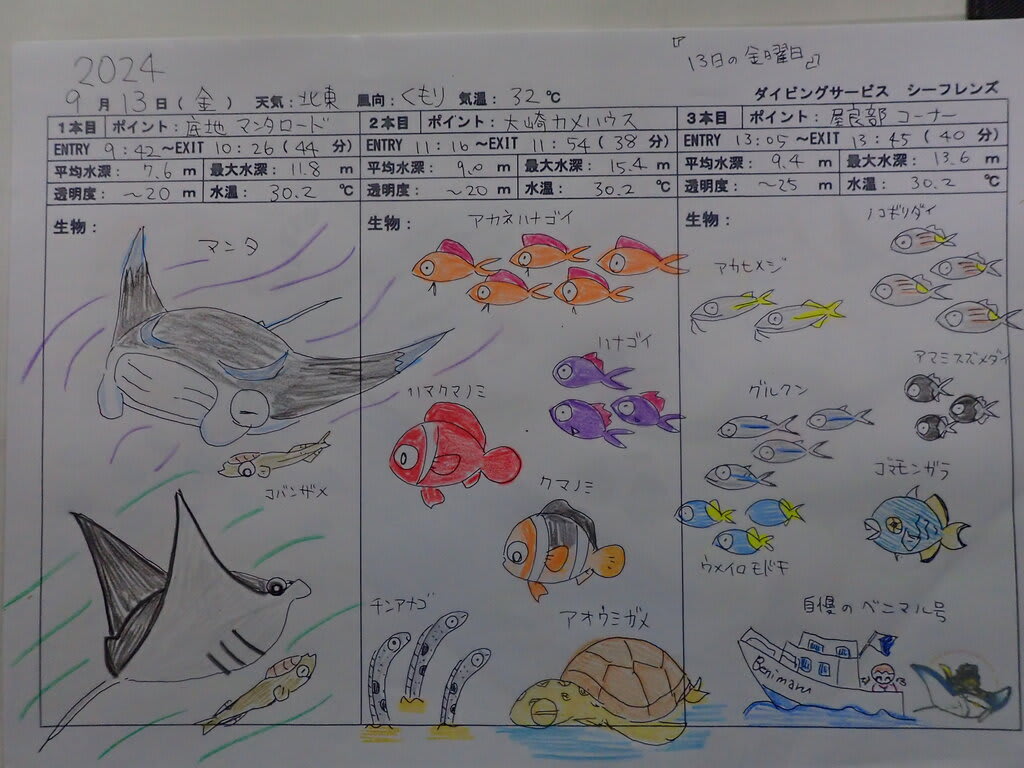 2024
『13日の金曜日』
9月13日(金) 天気:北東 風向:くもり 気温:32℃
ダイビングサービス シーフレンズ
1本目 ポイント:底地 マンタロード
ENTRY 9:42~EXIT 10:26(44 分)
平均水深: 7.6 m 最大水深: 11.8 m
透明度: ~20 m 水温: 30.2 ℃
生物:
マンタ
コバンザメ
2本目 ポイント:大崎カメハウス
ENTRY 11:16~EXIT 11:54(38 分)
平均水深: 9.0 m 最大水深: 15.4 m
透明度: ~20 m 水温: 30.2 ℃
生物:
アカネハナゴイ
ハナゴイ
ハマクマノミ
クマノミ
チンアナゴ
アオウミガメ
3本目 ポイント:屋良部 コーナー
ENTRY 13:05~EXIT 13:45(40 分)
平均水深: 9.4 m 最大水深: 13.6 m
透明度: ~25 m 水温: 30.2 ℃
生物:
ノコギリダイ
アカヒメジ
アマミスズメダイ
グルクン
ゴマモンガラ
ウメイロモドキ
自慢のベニマル号
Benimaru